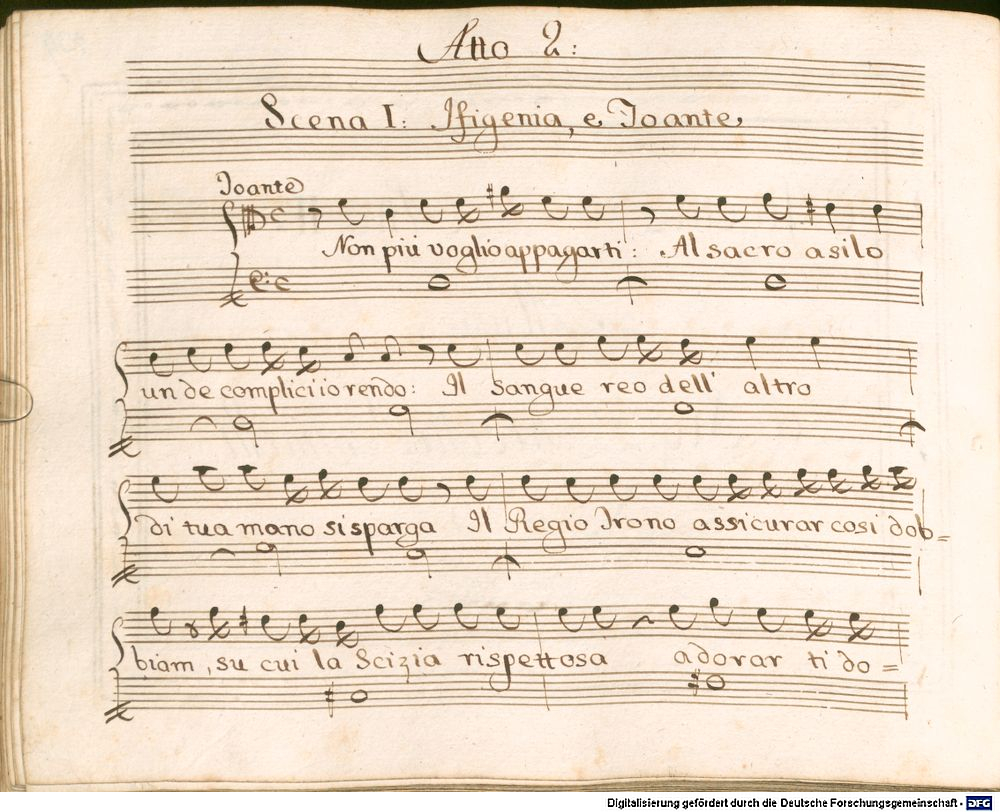 Atto 2:
Scena I: Ifigenia, e Toante
Toante
Non più voglio appagarti: Al sacro asilo
un de complici io rendo: Il sangue reo dell' altro
di tua mano si sparga Il Regio Trono assicurar così dob=
biam, su cui la Scizia rispettosa adorar ti do=
Digitalisierung gefördert durch die Deutsche Forschungsgemeinschaft - DFG